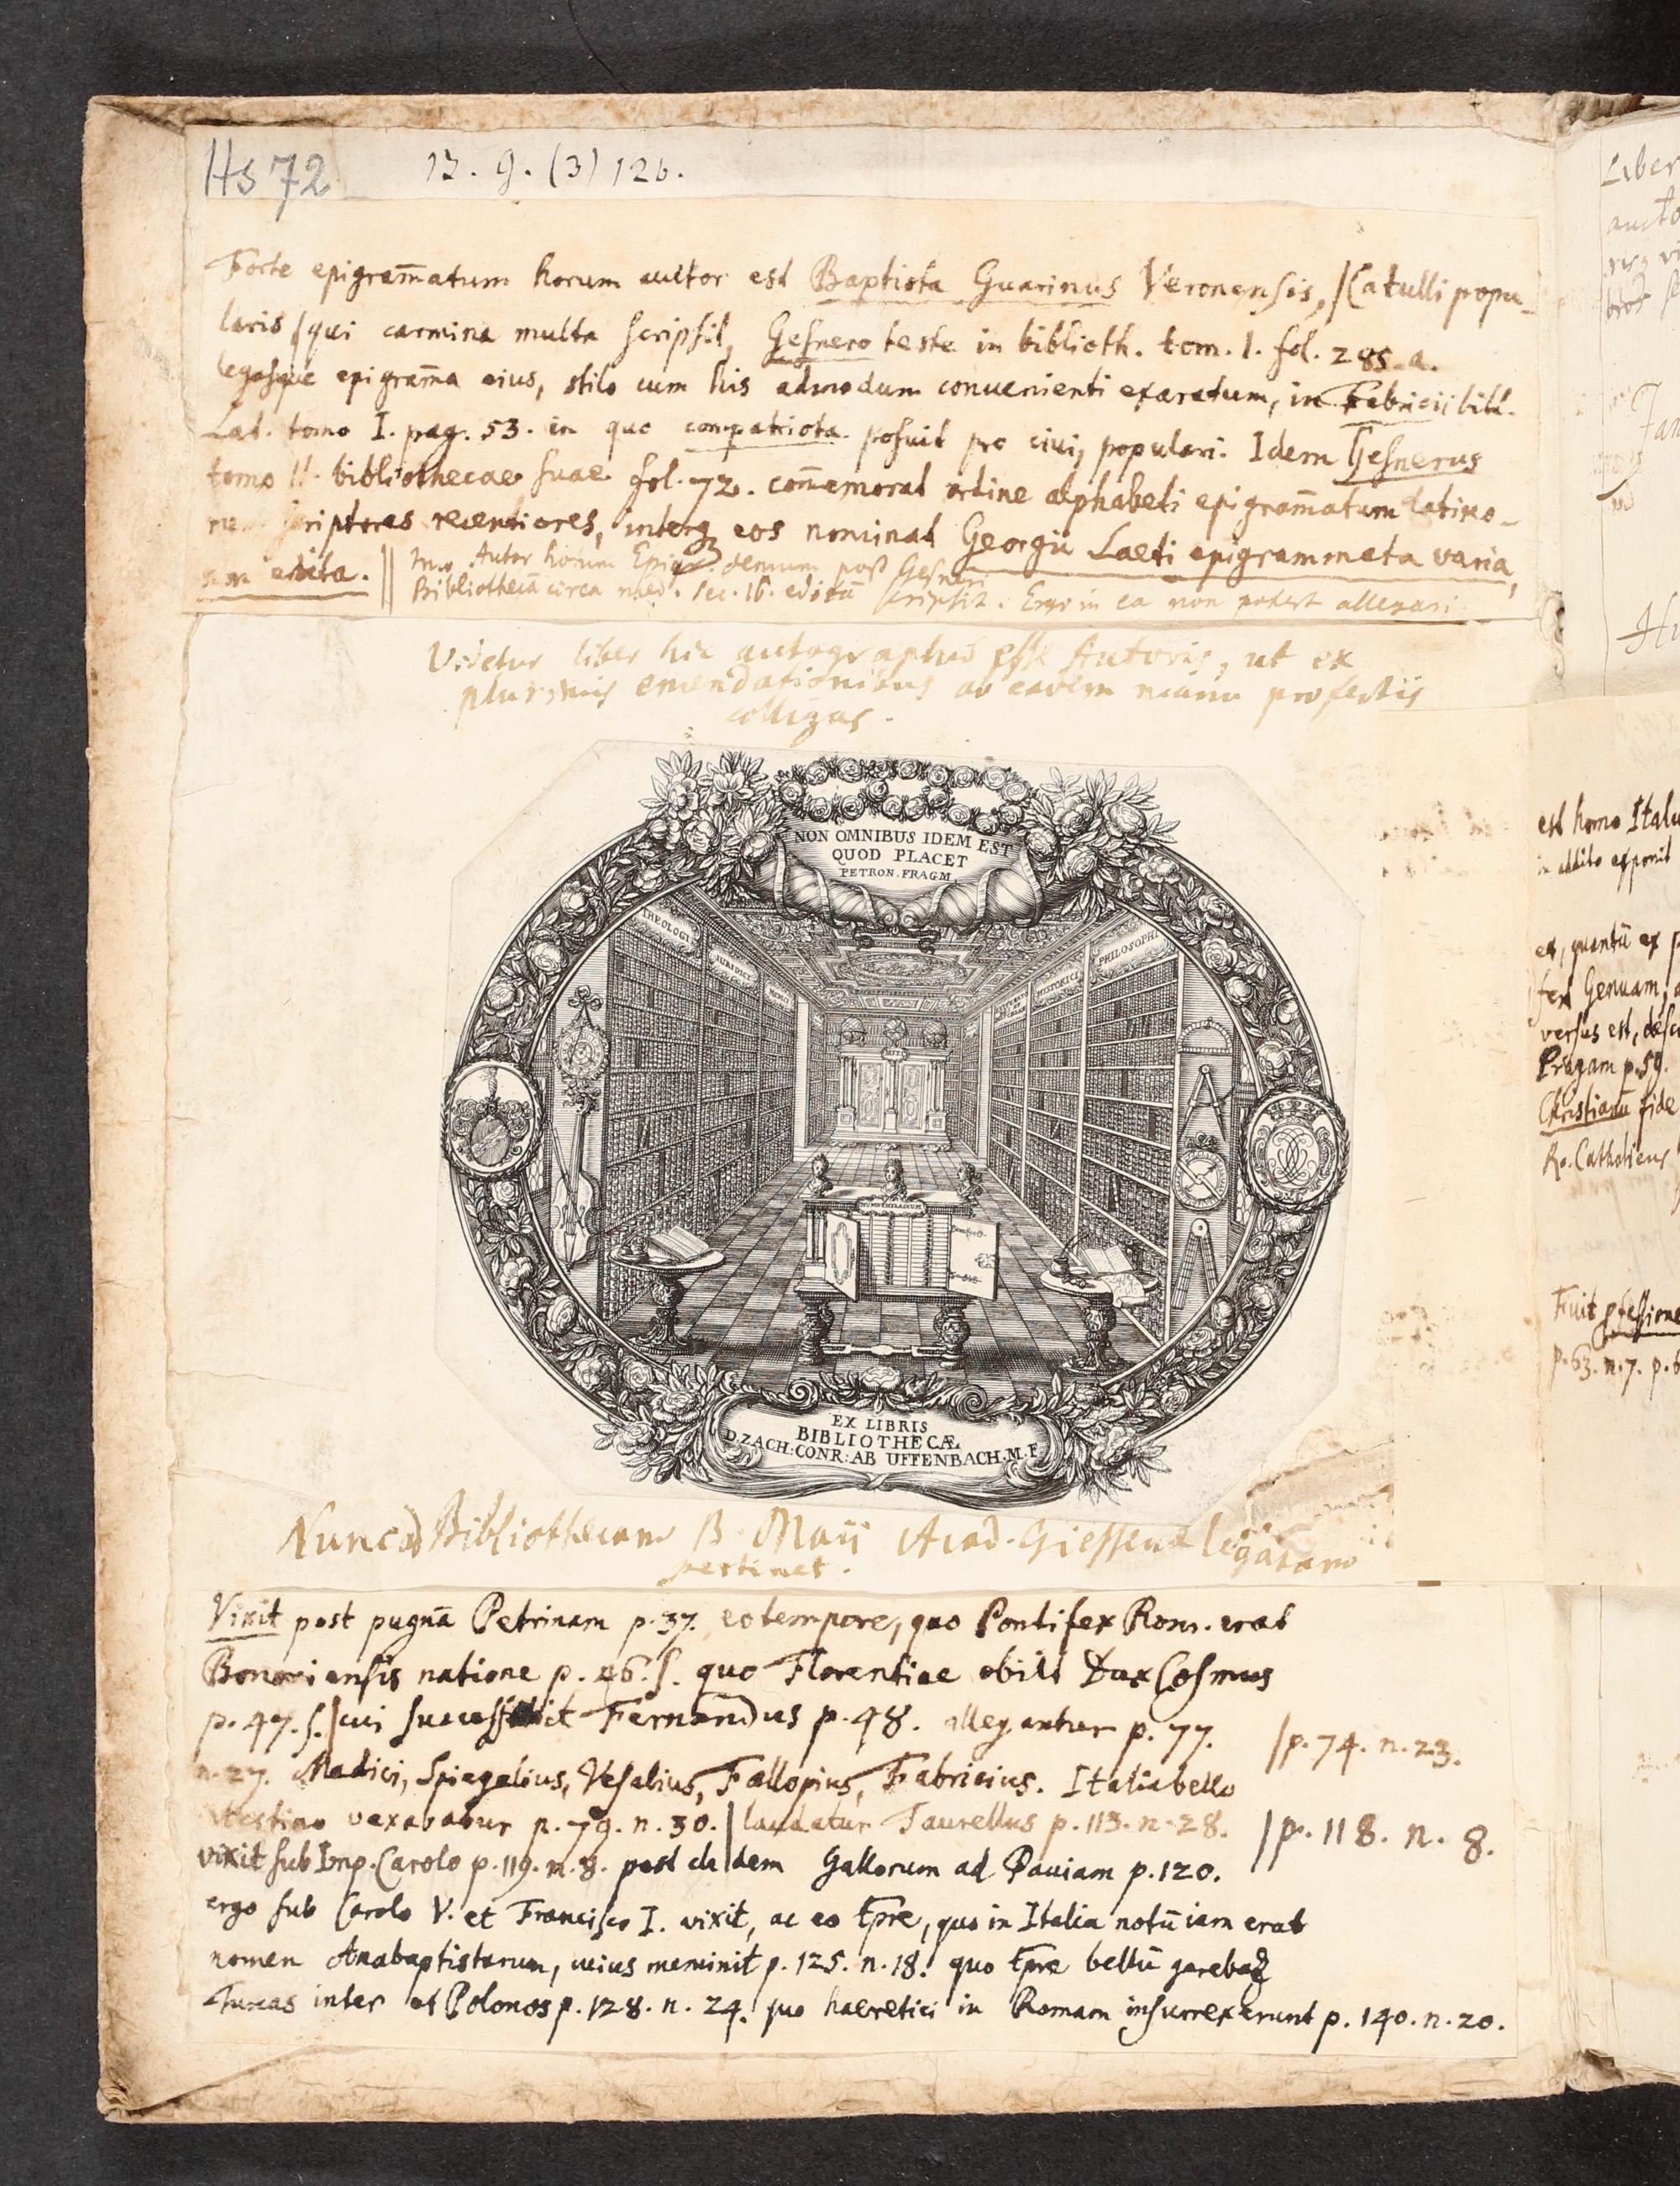 Hs 72 17. 9. (3) 126.
Forte epigram̄atum horum auctor est Baptista Guarinus Veronensis, |Catulli popu-
laris| qui carmina multa scripsit, Gesnero teste in biblioth. tom. 1. fol. 285. a.
legasque epigram̄a eius, stilo cum his admodum convenienti exaratum, in Fabricii bibl.
Lat. tomo I. pag. 53. in quo compatriota posuit pro civi, populari. Idem Gesnerus
tomo II. bibliothecae suae fol. 72. com̄emorat ordine alphabeti epigram̄atum latino-
scriptores recentiores, interq eos nominat Georgii Laeti epigrammata varia,
non edita. || Imo Autor horum Epigr. demum post Gesneri
Bibliothecā circa med. sec. 16. editā scripsit. Ergo in ea non potest allegari
Videtur liber hic autographus esse Autoris, ut ex
plurimis emendationibus ab eadem manu profectis
colligas.
NON OMNIBUS IDEM EST
QUOD PLACET
PETRON. FRAGM.
THEOLOGI
IURIDICI
MEDICI
HISTORICI
PHILOSOPHI
MSST
NUMOPHYLACIUM
EX LIBRIS
BIBLIOTHECÆ
D. ZACH: CONR: AB UFFENBACH. M. F.
Nunc ad Bibliothecam B. Maii Acad. Giessenae legatam
pertinet.
Vixit post pugnā Petrinam p. 37. eo tempore, quo Pontifex Rom. erat
Bononiensis natione p. 46. s. quo Florentiae obiit Dux Cosmus
p. 47. s. |cui successit Fernandus p. 48. allegantur p. 77. |p. 74. n. 23.
n. 27. Medici, Spiegelius, Vesalius, Fallopius, Fabricius. Italia bello
intestino vexabatur p. 79. n. 30. |laudatur Taurellus p. 113. n. 28. |p. 118. n. 8.
vixit sub Imp. Carolo p. 119. n. 8. post cladem Gallorum ad Paviam p. 120.
ergo sub Carolo V. et Francisco I. vixit, ac eo tp̄re, quo in Italia notū iam erat
nomen Anabaptistarum, cuius meminit p. 125. n. 18. quo tp̄re bellū gereba
Turcas inter et Polonos p. 128. n. 24. quo haeretici in Romam insurrexerunt p. 140. n. 20.
Liber
est homo Italu
in addito exponit
et, quantū ex
fex Genuam,
versus est, desc
Pragam p. 59.
Christianū fide
Ro. Catholicus
Fuit pfessione
p. 63. n. 7. p. 6